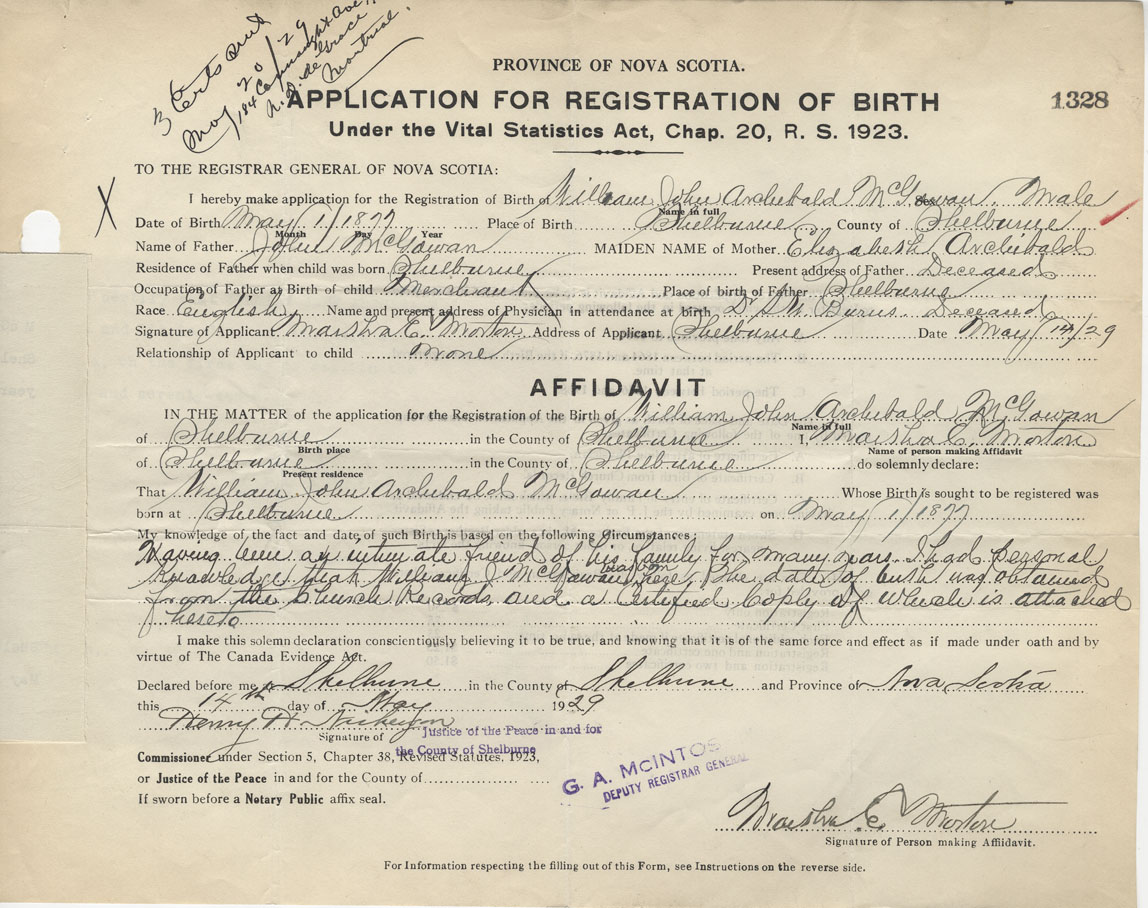 3 Certs sent
May 20/29
184 Connaught Ave
N. D. de Grace
Montreal.
PROVINCE OF NOVA SCOTIA.
APPLICATION FOR REGISTRATION OF BIRTH
1328
Under the Vital Statistics Act, Chap. 20, R. S. 1923.
TO THE REGISTRAR GENERAL OF NOVA SCOTIA:
X
I hereby make application for the Registration of Birth of William John Archibald McGowan Sex Male
Name in full
Date of Birth May 1/1877 Place of Birth Shelburne County of Shelburne
Month Day Year
Name of Father John McGowan MAIDEN NAME of Mother Elizabeth Archibald
Residence of Father when child was born Shelburne Present address of Father Deceased
Occupation of Father at Birth of child Merchant Place of birth of Father Shelburne
Race English Name and present address of Physician in attendance at birth Dr. Burns Deceased
Signature of Applicant Marsha E. Morton Address of Applicant Shelburne Date May 14/29
Relationship of Applicant to child None
AFFIDAVIT
IN THE MATTER of the application for the Registration of the Birth of William John Archibald McGowan
Name in full
of Shelburne in the County of Shelburne I, Marsha E. Morton
Birth place Name of person making Affidavit
of Shelburne in the County of Shelburne do solemnly declare:
Present residence
That William John Archibald McGowan Whose Birth is sought to be registered was
born at Shelburne on May 1/1877
My knowledge of the fact and date of such Birth is based on the following Circumstances:
Having been an intimate friend of his family for many years I had personal
knowledge that William J McGowan was born here. The date of birth was obtained
from the Church Records and a Certified Copy of which is attached
hereto
I make this solemn declaration conscientiously believing it to be true, and knowing that it is of the same force and effect as if made under oath and by
virtue of The Canada Evidence Act.
Declared before me at Shelburne in the County of Shelburne and Province of Nova Scotia
this 14th day of May 1929
Henry H.
Signature of Justice of the Peace in and for
the County of Shelburne
Commissioner under Section 5, Chapter 38, Revised Statutes, 1923,
or Justice of the Peace in and for the County of
G. A. MCINTOS
DEPUTY REGISTRAR GENERAL
If sworn before a Notary Public affix seal.
Marsha E. Morton
Signature of Person making Affiidavit.
For Information respecting the filling out of this Form, see Instructions on the reverse side.